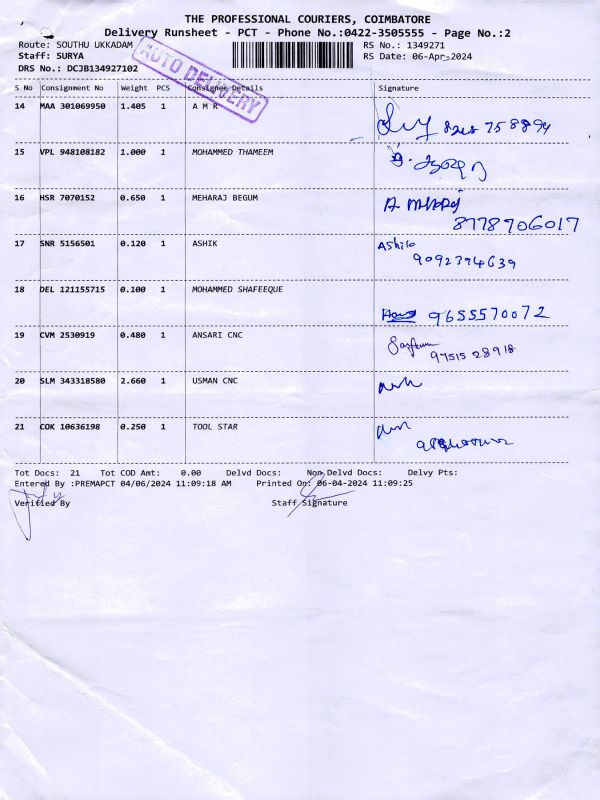 THE PROFESSIONAL COURIERS, COIMBATORE
Delivery Runsheet - PCT - Phone No.:0422-3505555 - Page No.:2
Route: SOUTHU UKKADAM RS No.: 1349271
Staff: SURYA RS Date: 06-Apr-2024
DRS No.: DCJB134927102
AUTO DELIVERY
S No Consignment No Weight PCS Consignee Details Signature
14 MAA 301069950 1.405 1 A M R
758894
15 VPL 948108182 1.000 1 MOHAMMED THAMEEM
16 HSR 7070152 0.650 1 MEHARAJ BEGUM
8778706017
17 SNR 5156501 0.120 1 ASHIK Ashik
9092394639
18 DEL 121155715 0.100 1 MOHAMMED SHAFEEQUE
9655570072
19 CVM 2530919 0.480 1 ANSARI CNC
97515 28918
20 SLM 343318580 2.660 1 USMAN CNC
21 COK 10636198 0.250 1 TOOL STAR
Tot Docs: 21 Tot COD Amt: 0.00 Delvd Docs: Non Delvd Docs: Delvy Pts:
Entered By :PREMAPCT 04/06/2024 11:09:18 AM Printed On: 06-04-2024 11:09:25
Verified By Staff Signature